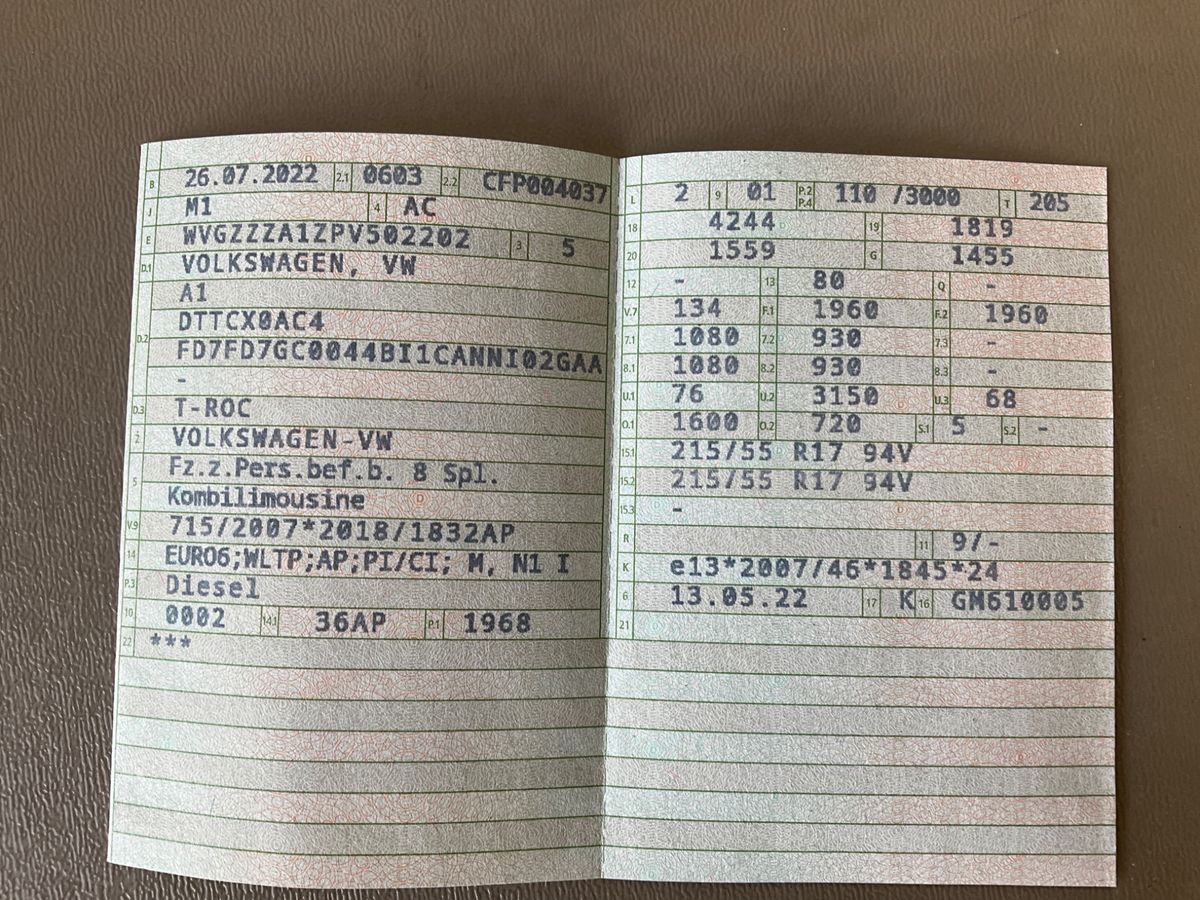 B 26.07.2022 2.1 0603 2.2 CFP004037
J M1 4 AC
E WVGZZZA1ZPV502202 3 5
D.1 VOLKSWAGEN, VW
A1
DTTCX0AC4
D.2 FD7FD7GC0044BI1CANNI02GAA
-
D.3 T-ROC
2 VOLKSWAGEN-VW
Fz.z.Pers.bef.b. 8 Spl.
5 Kombilimousine
V.9 715/2007*2018/1832AP
14 EURO6;WLTP;AP;PI/CI; M, N1 I
P.3 Diesel
10 0002 14.1 36AP P.1 1968
22 ***
L 2 9 01 P.2 P.4 110 /3000 T 205
18 4244 19 1819
20 1559 G 1455
12 - 13 80 Q -
V.7 134 F.1 1960 F.2 1960
7.1 1080 7.2 930 7.3 -
8.1 1080 8.2 930 8.3 -
U.1 76 U.2 3150 U.3 68
O.1 1600 O.2 720 S.1 5 S.2 -
15.1 215/55 R17 94V
15.2 215/55 R17 94V
15.3 -
R 11 9/-
K e13*2007/46*1845*24
6 13.05.22 17 K 16 GM610005
21